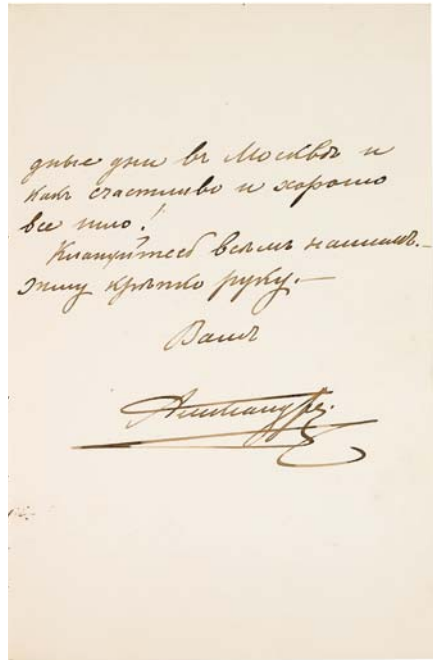 дные дни въ Москвѣ и
какъ счастливо и хорошо
все шло!
Кланяйтесь всѣмъ нашимъ. —
Жму крѣпко руку. —
Вашъ
Александръ.